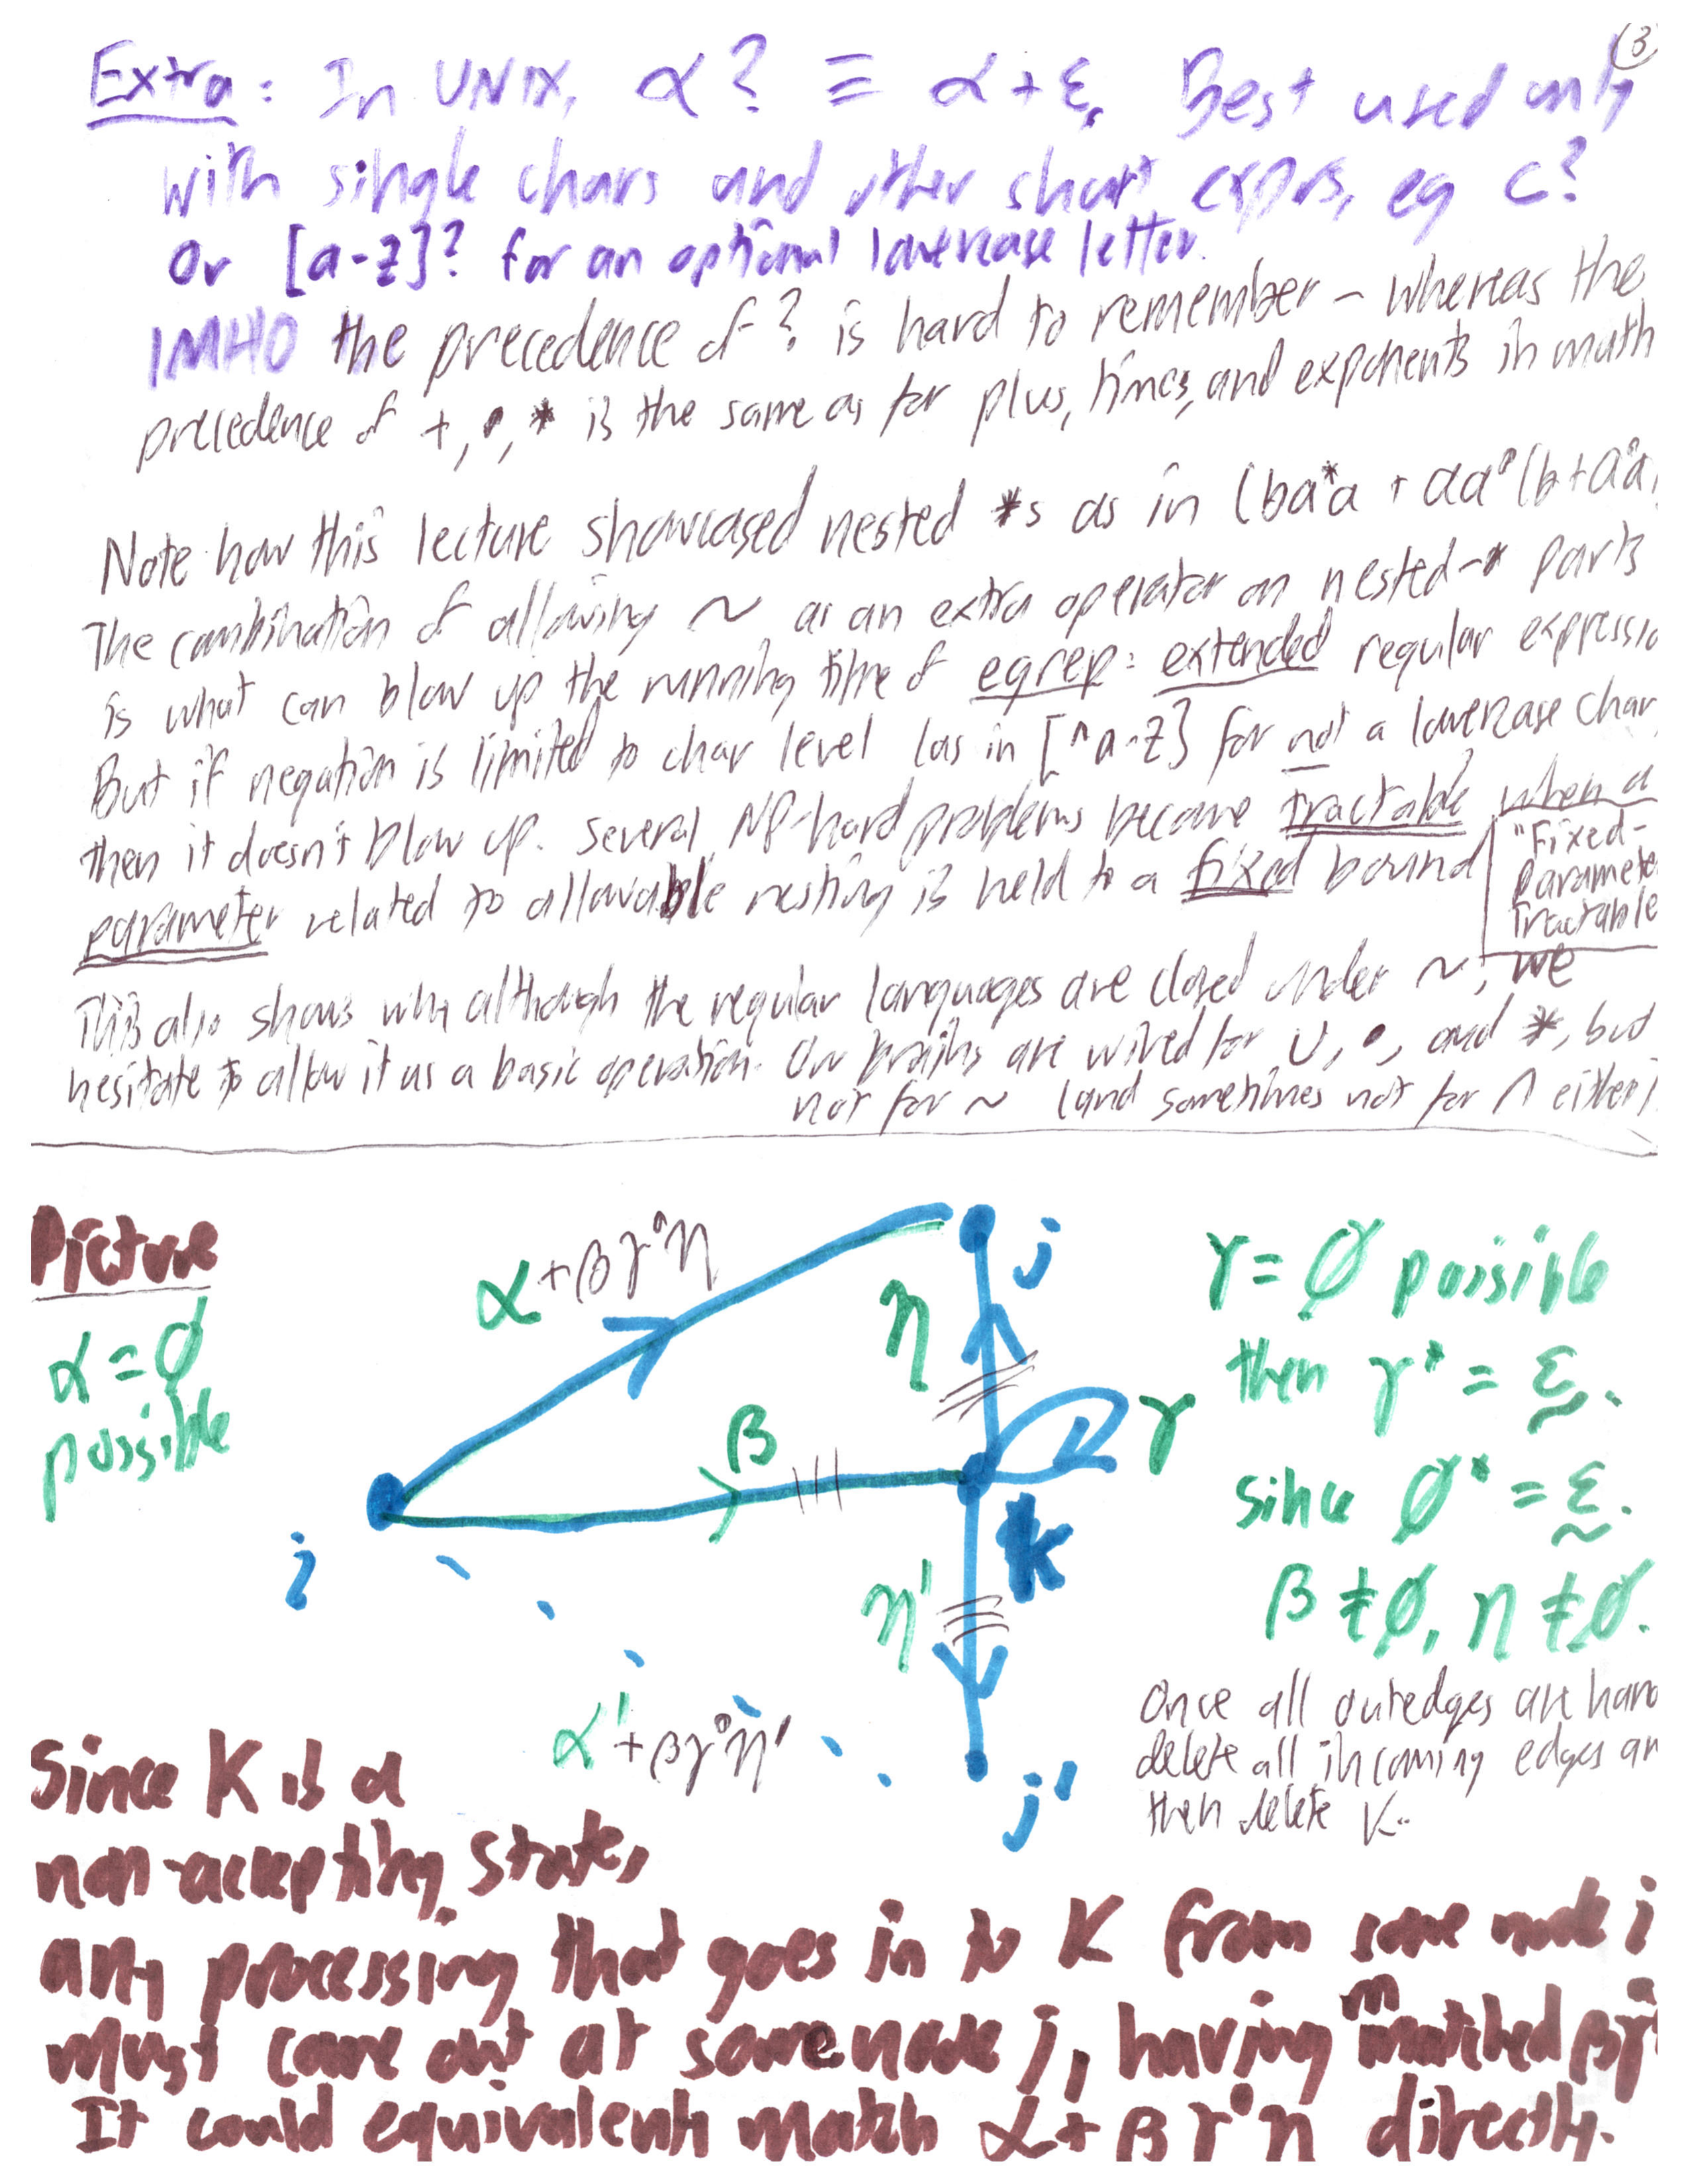 (3
Extra: In UNIX, α? ≡ α+ε. Best used only
with single chars and other short exprs, eg c?
Or [a-z]? for an optional lowercase letter.
IMHO the precedence of ? is hard to remember – whereas the
precedence of +, •, * is the same as for plus, times, and exponents in math
Note how this lecture showcased nested *s as in (ba*a + aa*(b+a*a
The combination of allowing ~ as an extra operator on nested-* parts
is what can blow up the running time of egrep: extended regular expressio
But if negation is limited to char level (as in [^a-z] for not a lowercase char,
then it doesn't blow up. Several NP-hard problems become tractable when a
parameter related to allowable nesting is held to a fixed bound
"Fixed-
Paramete
Tractable
This also shows why although the regular languages are closed under ~, we
hesitate to allow it as a basic operation. Our brains are wired for ∪, •, and *, but
not for ~ (and sometimes not for ∩ either)
Picture
α = ∅
possible
α+βγ*η
j
η
β
γ
i
k
η'
α'+βγ*η'
j'
γ = ∅ possible
then γ* = ε.
since ∅* = ε.
β ≠ ∅, η ≠ ∅.
Once all outedges are hand
delete all incoming edges an
then delete K.
Since K is a
non-accepting state,
any processing that goes in to K from some node i
must come out at some node j, having matched βγ*
It could equivalently match α+βγ*η directly.